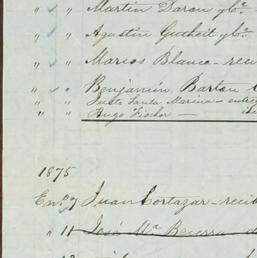 " " Martin Daran y Ca.
" " Agustin Gutheil y Ca.
" " Marcos Blanco - reci
" " Benjamin Bartan
Justo Santa Marina - entre
Hugo Fischer -
1875
En.o 7 Juan Cortazar - recib
" 11 José Ma. Becerra - d